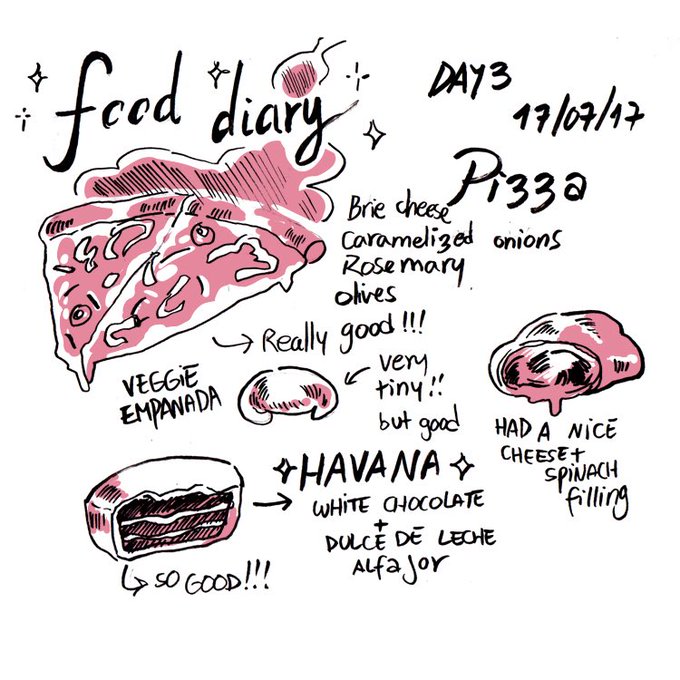 food diary
DAY 3
17/07/17
Pizza
Brie cheese
Caramelized onions
Rosemary
olives
Really good!!!
VEGGIE
EMPANADA
very
tiny!!
but good
HAD A NICE
CHEESE+
SPINACH
filling
HAVANA
WHITE CHOCOLATE
+
DULCE DE LECHE
Alfajor
SO GOOD!!!